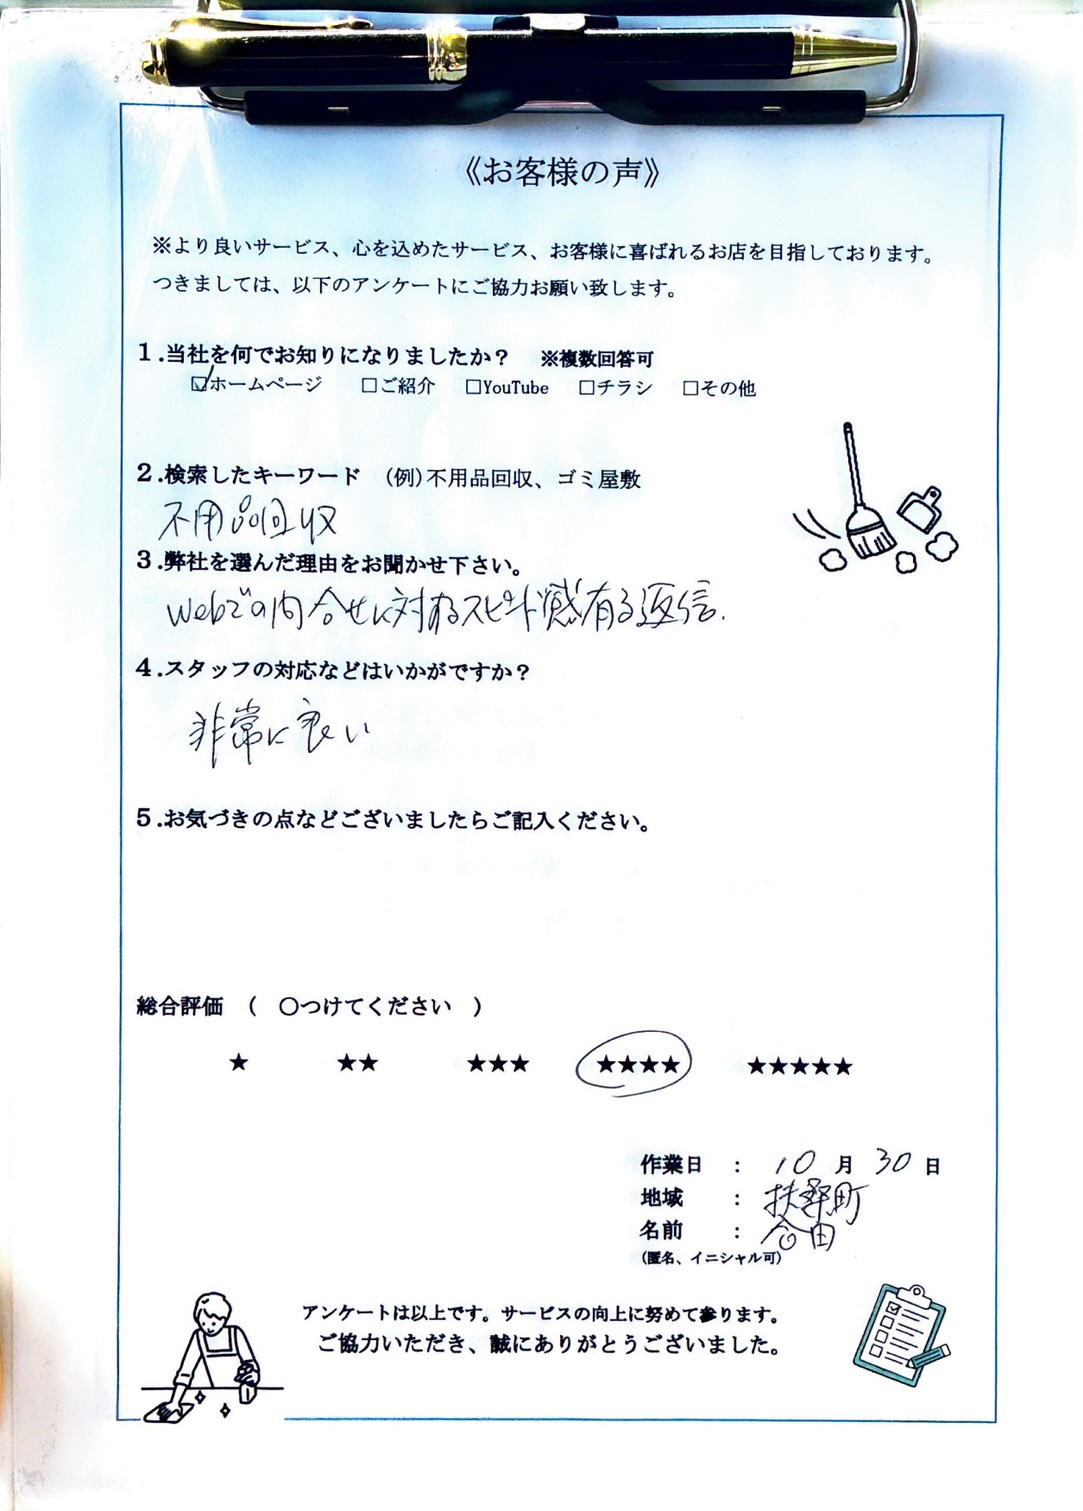 《お客様の声》
※より良いサービス、心を込めたサービス、お客様に喜ばれるお店を目指しております。
つきましては、以下のアンケートにご協力お願い致します。
1.当社を何でお知りになりましたか？ ※複数回答可
☑ホームページ □ご紹介 □YouTube □チラシ □その他
2.検索したキーワード (例)不用品回収、ゴミ屋敷
不用品回収
3.弊社を選んだ理由をお聞かせ下さい。
Webでの問合せに対するスピード感有る返信.
4.スタッフの対応などはいかがですか？
非常に良い
5.お気づきの点などございましたらご記入ください。
総合評価 ( 〇つけてください )
★ ★★ ★★★ ★★★★ ★★★★★
作業日 : 10月30日
地域 : 町
名前 : 合田
(匿名、イニシャル可)
アンケートは以上です。サービスの向上に努めて参ります。
ご協力いただき、誠にありがとうございました。